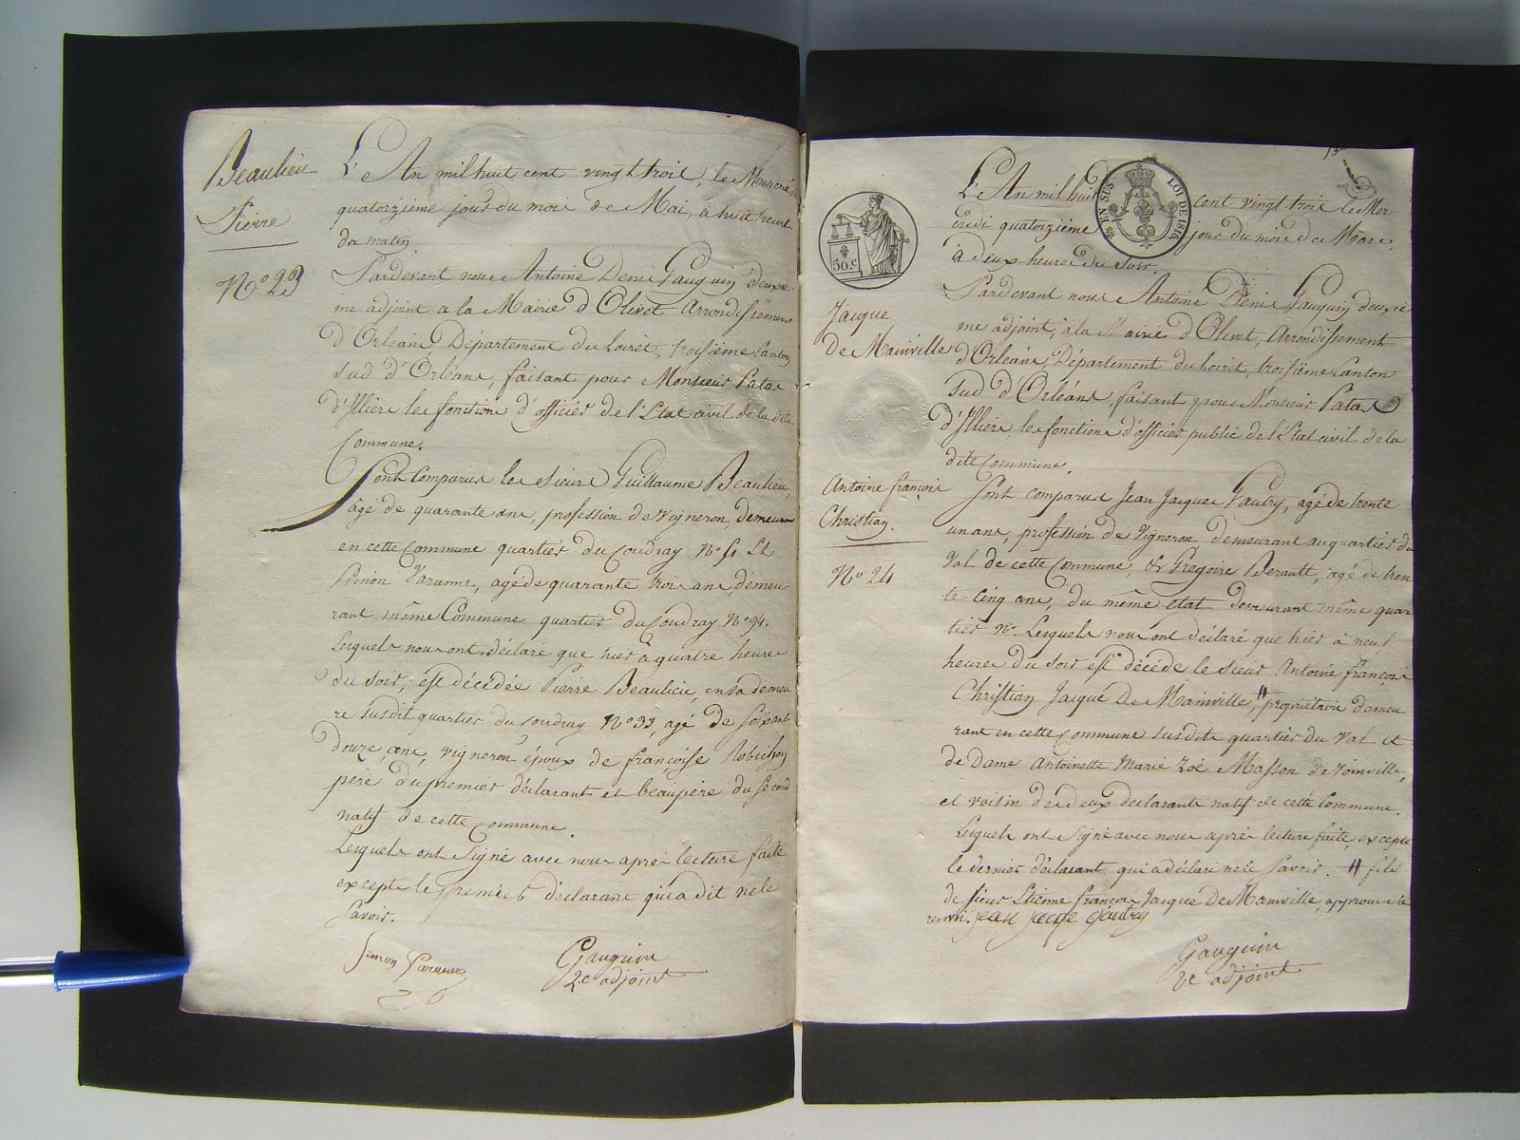 Beaulieu
Pierre
N.° 23
L'An mil huit cent vingt trois, le Mercredi
quatorzieme jour du mois de Mai, à huit heures
du matin
Pardevant nous Antoine Denis Gauguin deuxie
me adjoint a la Mairie d'Olivet Arrondissement
d'Orléans Département du Loiret, troisième Canton
Sud d'Orléans, faisant pour Monsieur Patas
d'Illiers les fonctions d'officier de l'Etat civil de la dite
Commune.
Sont Comparus les sieurs Guillaume Beaulieu,
âgé de quarante ans, profession de vigneron, demeurant
en cette Commune quartier du Coudray N.° 51 Et
Simon agé de quarante trois ans, demeu
rant même Commune quartier du Coudray N.° 94.
Lesquels nous ont déclaré que hier à quatre heures
du soir, est décédée Pierre Beaulieu, en sa demeu
re susdit quartier du Coudray N.° 33, agé de soixante
douze ans, vigneron époux de françoise Robichon
père du premier déclarant et beaupère du second
natif de cette Commune.
Lesquels ont Signé avec nous après lecture faite
excepté le premier déclarant qui a dit ne le
savoir.
Simon
Gauguin
2e adjoint
EN SUS
LOI DE 1816
50.c
Jacque
de Mainville
Antoine françois
Christian.
N.° 24
L'An mil huit cent vingt trois le Mer
credi quatorzième jour du mois de Mai
à deux heures du Soir.
Pardevant nous Antoine Denis Gauguin deuxie
me adjoint, à la Mairie d'Olivet, Arrondissement
d'Orléans, Département du Loiret, troisième Canton
Sud d'Orléans, faisant pour Monsieur Patas
d'Illiers les fonctions d'officier public de l'Etat civil de la
dite Commune.
Sont comparus Jean Jacques Gaudry, agé de trente
un ans, profession de Vigneron demeurant au quartier du
Val de cette Commune, & Gregoire Berault, agé de tren
te cinq ans, du même état demeurant même quar
tier N.° Lesquels nous ont déclaré que hier à neuf
heures du soir est décédé le sieur Antoine françois
Christian Jacque de Mainville, # propriétaire demeu
rant en cette Commune susdite quartier du Val et
de Dame Antoinette Marie Zoé Masson de Voinville,
et voisin des deux declarants natif de cette Commune.
Lesquels ont Signé avec nous après lecture faite excepté
le dernier déclarant qui a déclaré ne le savoir. # fils
de Sieur Etienne françois Jacque de Mainville, approuvé le
renvoi. Jean Jacque Gaudry
Gauguin
2e adjoint